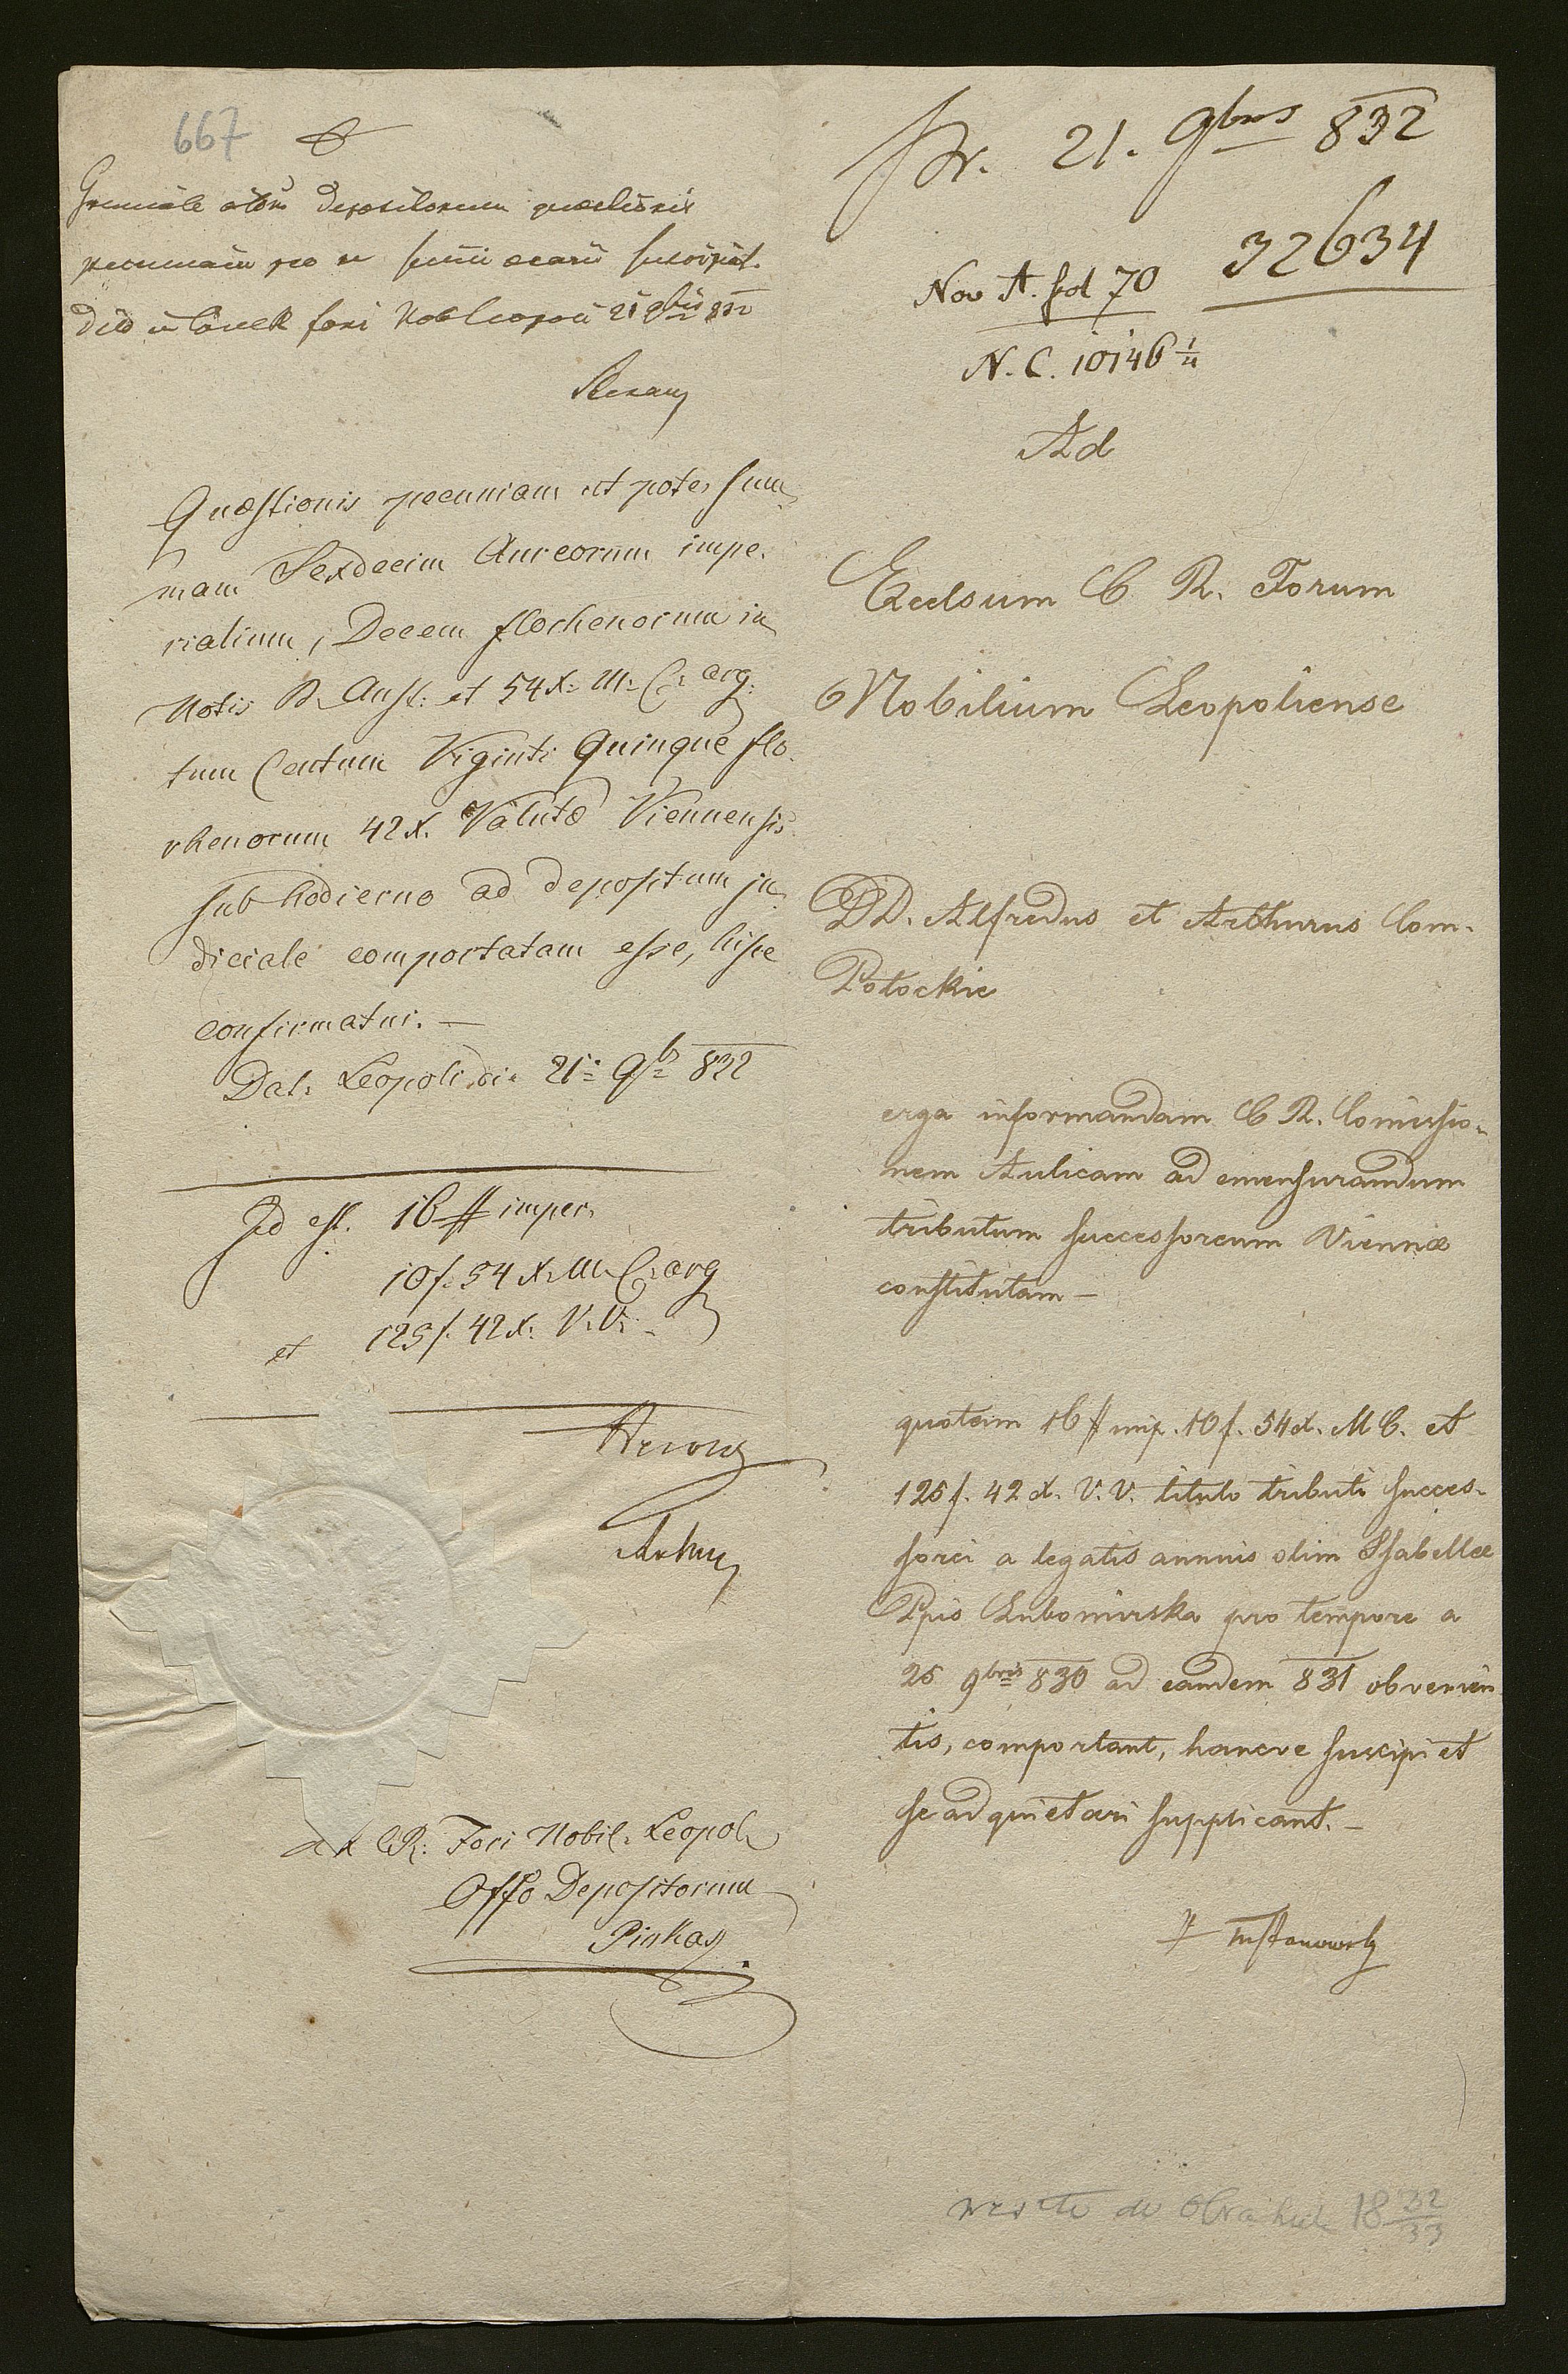 667
Gremiale officium depositorum quaestionis
pecuniam pro
21 9bris 832
Quæstionis pecuniam ut pote, sum
mam Sexdecim Aureorum impe-
rialium, Decem florhenorum in
Notis B. Aust: et 54 x. M. C. arg.
tum Centum Viginti Quinque flo-
rhenorum 42 x. Valutæ Viennensis
sub hodierno ad depositum ju
diciale comportatam esse, hisce
confirmatur. —
Dat. Leopoli die 21a 9bris 832
Id est. 16 # imper.
10 f. 54 x. M. C. arg
et 125 f. 42 x. V. V. -
CR. Fori Nobil. Leopol.
Offo Depositorum
Pr. 21. 9bris 832
32634
Nov A. fol 70
N. C. 10146 1/4
Ad
Excelsum C. R. Forum
Nobilium Leopoliense
DD. Alfredus et Arthurus Com.
Potockie
erga informandam C. R. Comissio-
nem Aulicam ad emensurandum
tributum successoreum Viennæ
constitutam —
quotam 16 # imp. 10 f. 54 x. M C. et
125 f. 42 x. V. V. titulo tributi succes-
sorei a legatis annuis olim Isabellæ
Ppis Lubomirska pro tempore a
25 9bris 830 ad eandem 831 obvenien
tis, comportant, hancce suscipi et
se adquietari supplicant. —
18 32/33